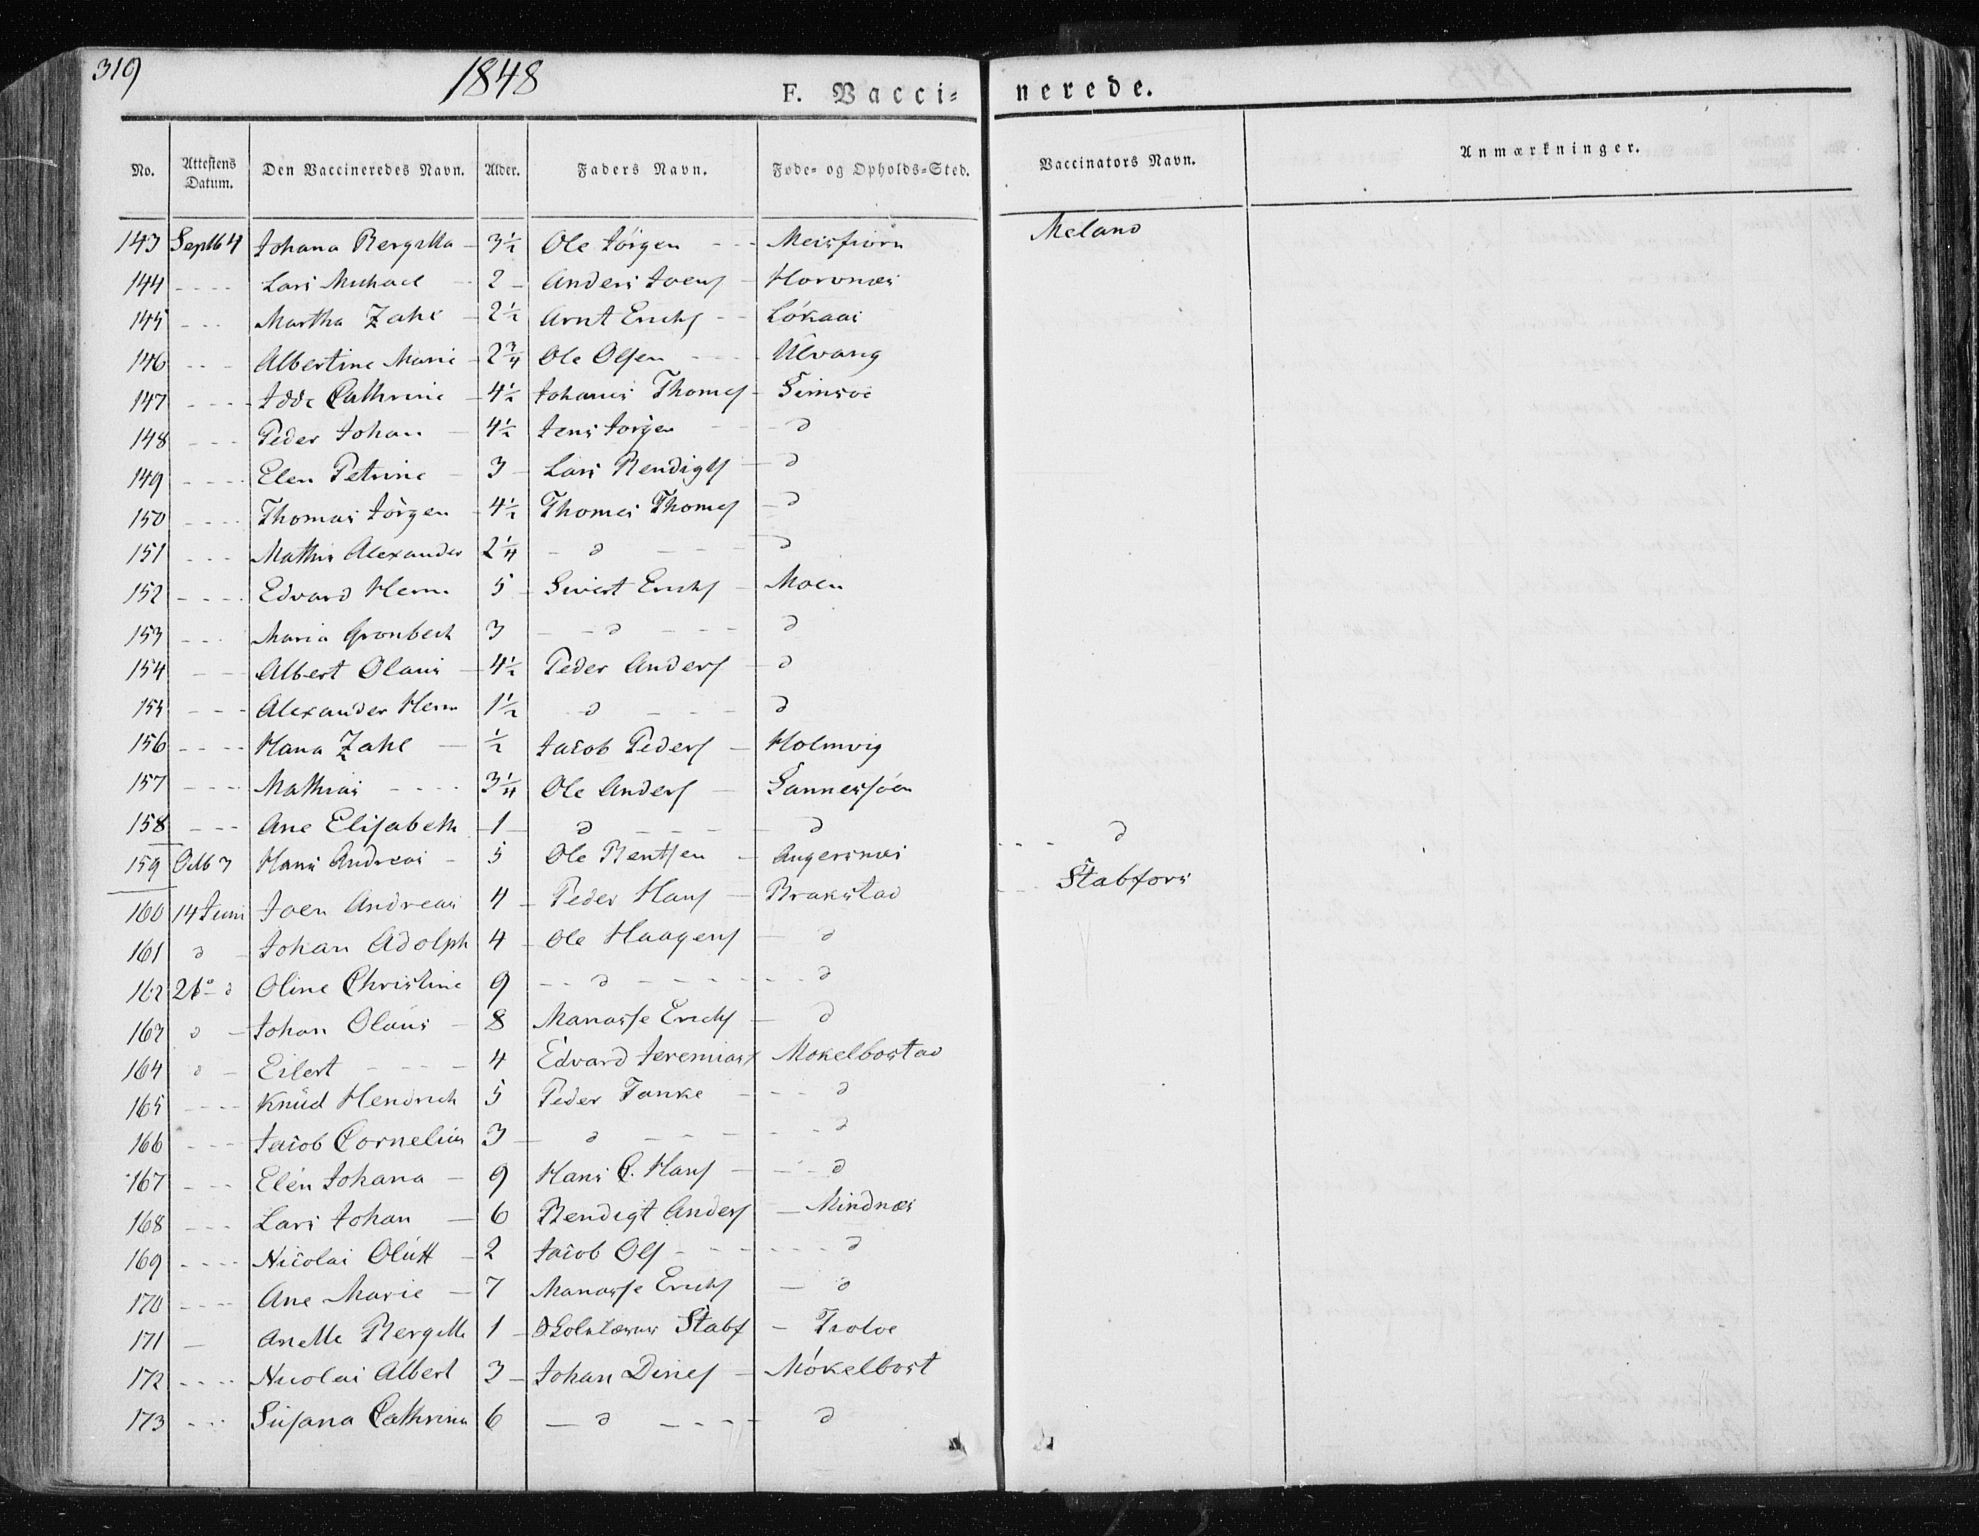 319
1848
F. Vacci- nerede.
No. Attestens Datum. Den Vaccineredes Navn. Alder. Faders Navn. Føde- og Opholds-Sted. Vaccinators Navn. Anmærkninger.
143 Septb 4 Johana Bergitta - 3½ Ole Jörgen - - - Meisfiorn Meland
144 - - - - Lars Michael - 2 - Anders Joens - Horvnæs
145 - - - Martha Zahl - 2½ Arnt Erichs - - Lökaas
146 - - - Albertine Marie - 2¾ Ole Olsen - - - - Ulvang
147 - - - - Idde Cathrine - 4½ Johanes Thomes - Simsoe
148 - - - Peder Johan - 4½ Jens Jörgen - - - d
149 - - - - Elen Petrine - 3 - Lars Bendigts - d
150 - - - - Thomas Jörgen - 4½ Thomes Thomes - d
151 - - - Mathis Alexander 2¼ - d - - - d
152 - - - - Edvard Herm 5 - Sivert Erichs - Moen
153 - - - Maria Gronbech 3 - - d - - - d
154 - - Albert Olaus - 4½ Peder Anders - d
155 - - - Alexander Herm 1½ - d - - - - d
156 - - - - Hana Zahl - ½ Jacob Peders - Holmvig
157 - - - - Mathias - - - - 3¼ Ole Anders - Sannessöen
158 - - - Ane Elisabeth - 1 - d - - - - - d - - - d
159 Octb 7 Hans Andreas - 5 Ole Bentsen - Angersnæs
160 14 Juni Joen Andreas 4 - Peder Hans - Brakstad - - - Stabfors
161 d - Johan Adolph 4 - Ole Haagens - d
162 21 - d Oline Christine 9 - - d - - - - - - d
163 d - Johan Olaus - 8 Manasse Erichs - d
164 d - Eilert - - - - 4 Edvard Jeremias Mokelbostad
165 - - - - Knüd Hendrich 5 Peder Tanke - - - - d
166 - - - Jacob Cornelius 3 - d - - - - - - d
167 - - - Elen Johana - 9 Hans C. Hans - - - d
168 - - - Lars Johan - 6 Bendigt Anders - Mindnæs
169 - - - - Nicolai Olütt - 2 Jacob Ols - - - - - - - d
170 - - - - Ane Marie - 7 Manasse Erichs - d
171 - Anette Bergitte 1 - Stabf - Troloe
172 - - - - Nicolai Albert 3 - Johan Dines - Mökelbost
173 - - - Susana Cathrina 6 - d - - - - d